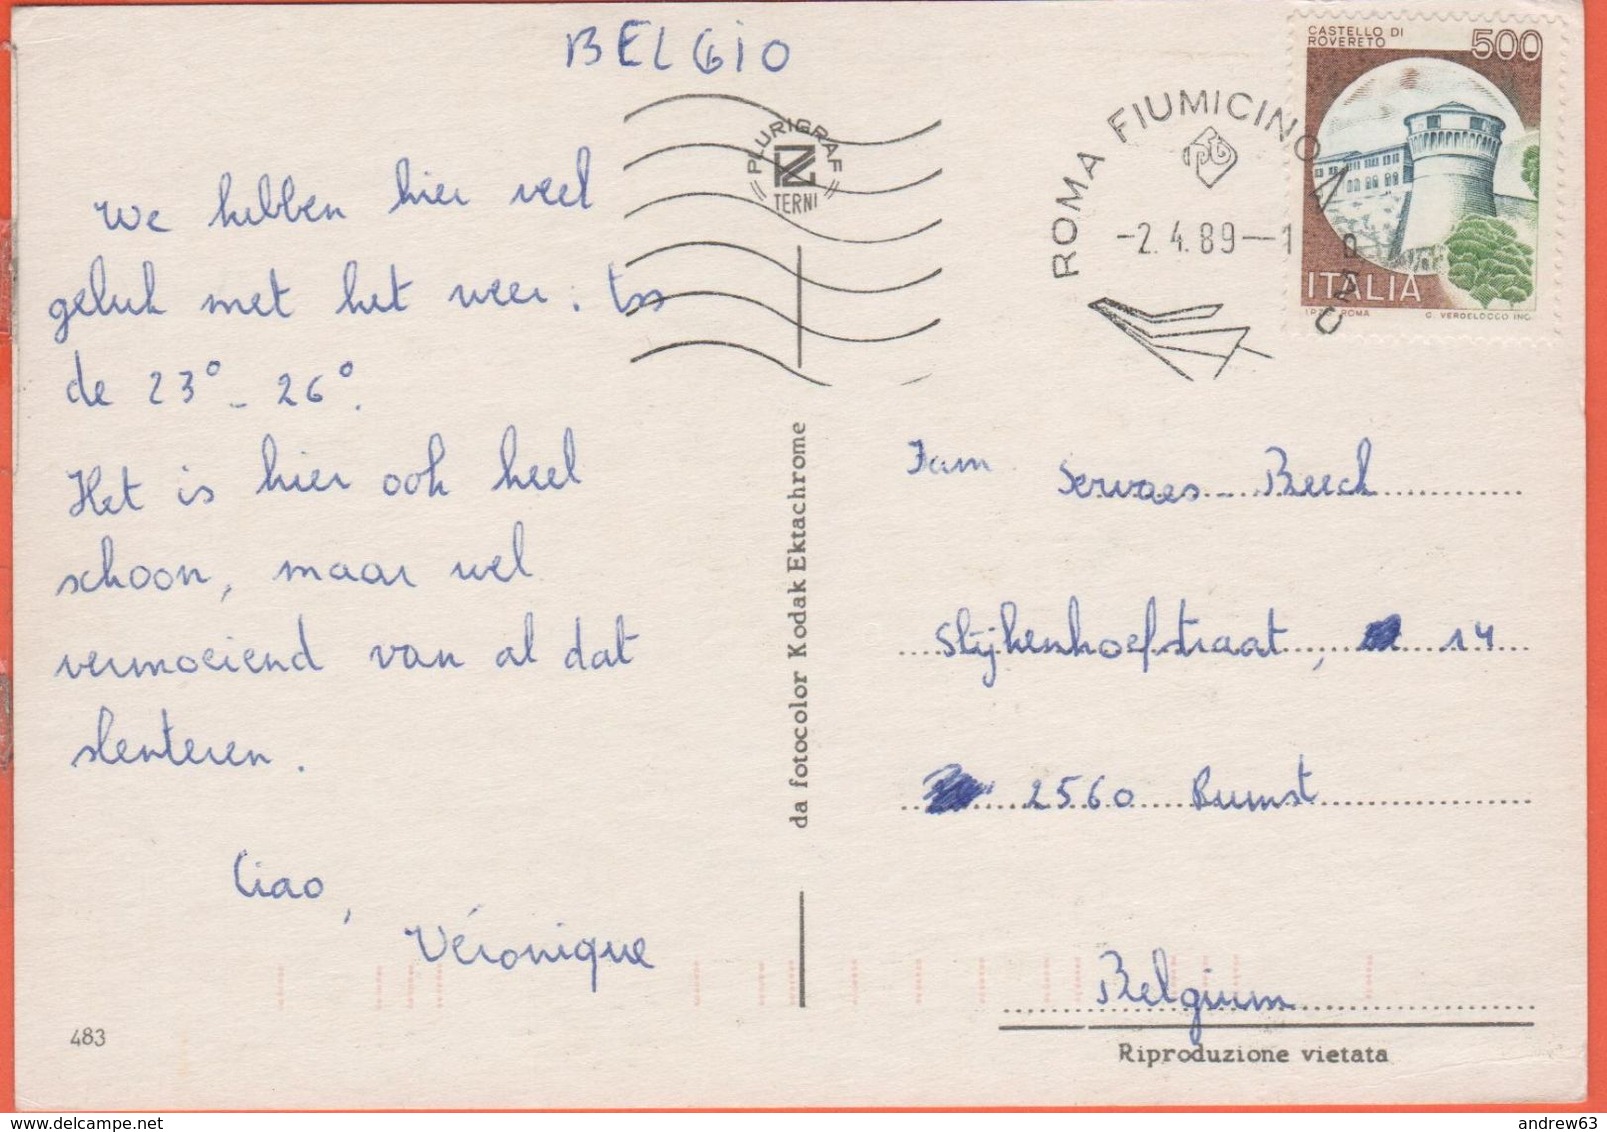 BELGIO
CASTELLO DI
ROVERETO
500
ITALIA
I.P.Z.S. ROMA
G. VERDELOCCO INC.
ROMA FIUMICINO
-2.4.89--1
PLURIGRAF
TERNI
We hebben hier veel
geluk met het weer. Tss
de 23° - 26°.
Het is hier ook heel
schoon, maar wel
vermoeiend van al dat
slenteren.
Ciao,
Véronique
483
da fotocolor Kodak Ektachrome
Fam Servaes-Beeck
Slijkenhoefstraat, 14
2560 Rumst
Belgium
Riproduzione vietata
andrew63